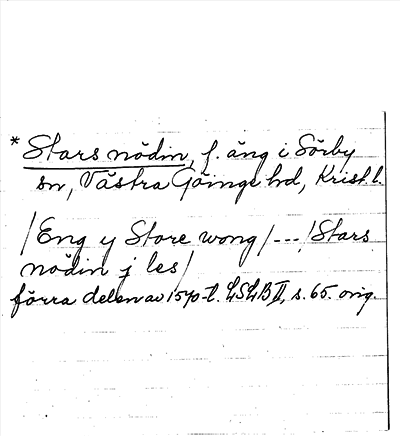 * Stars nödin, f. äng i Sörby
sn, Västra Göinge hd, Krist. l.
/Eng y Store wong/ --- /Stars
nödin j les/
förra delen av 1570-t. LSLB II, s. 65. orig.